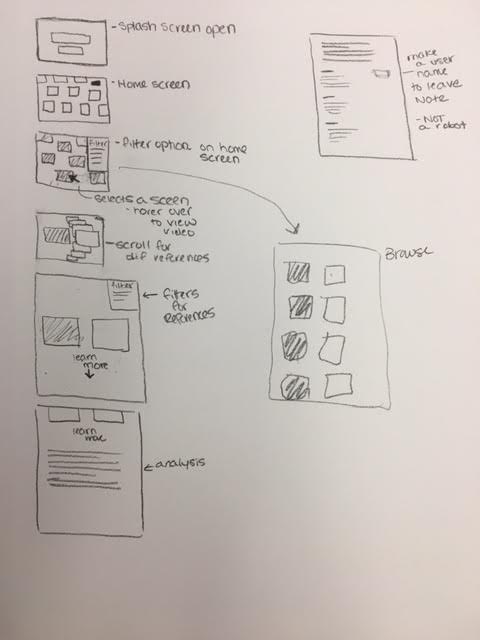 -Splash screen open
-Home screen
Filter
-filter option on home
screen
selects a sceen
-hover over
to view
video
scroll for
dif references
filter
filters
for
References
learn
more
learn
more
analysis
make
a user
name
to leave
Note
-NOT
a robot
Browse